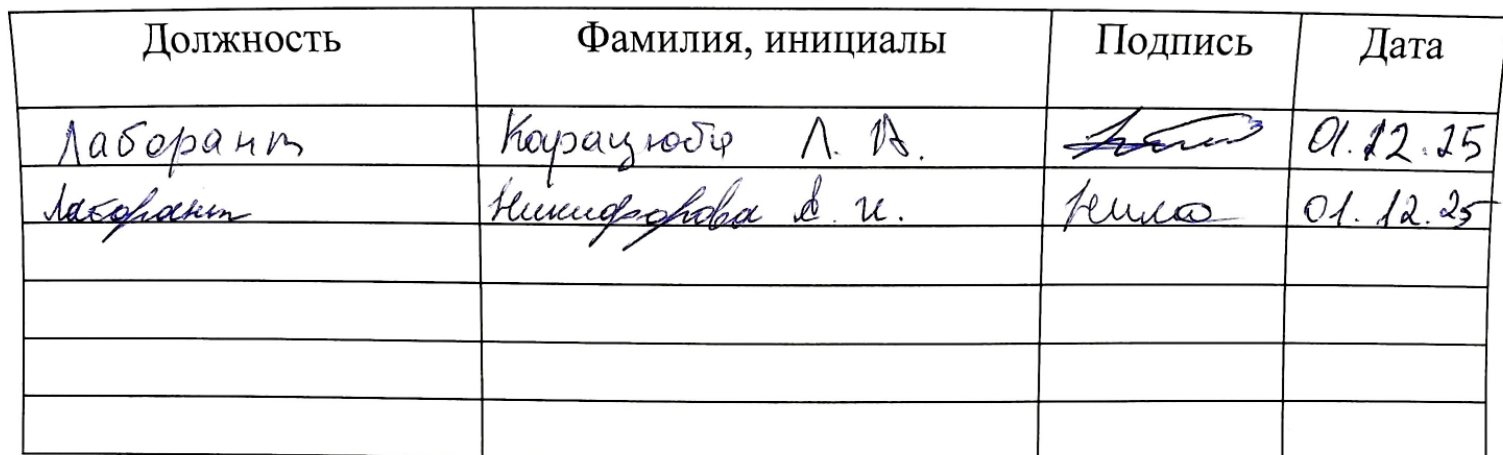 Должность Фамилия, инициалы Подпись Дата
Лаборант Карацюба Л. В. 01.12.25
Лаборант Никифорова А. И. 01.12.25